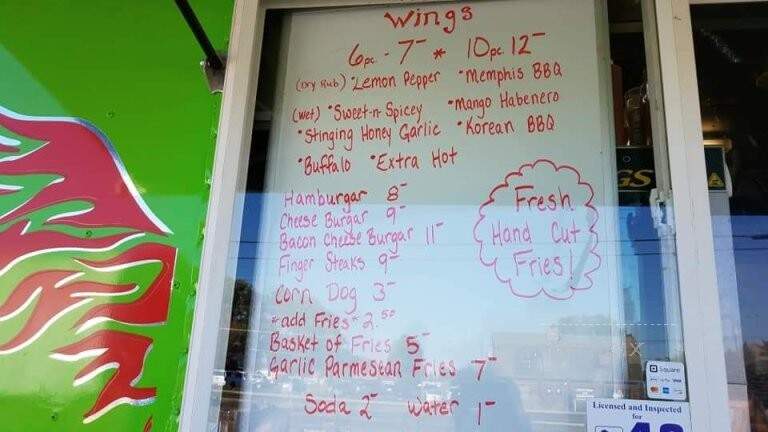 Wings
6pc. - 7- * 10pc. 12-
(Dry Rub) •Lemon Pepper •Memphis BBQ
(Wet) •Sweet-n-Spicey •Mango Habenero
•Stinging Honey Garlic •Korean BBQ
•Buffalo •Extra Hot
Hamburgar 8-
Cheese Burgar 9-
Bacon Cheese Burgar 11-
Finger Steaks 9-
Corn Dog 3-
-add Fries- 2.50
Basket of Fries 5-
Garlic Parmesean Fries 7-
Soda 2- Water 1-
Fresh
Hand Cut
Fries!
GS
Square
Licensed and Inspected
for